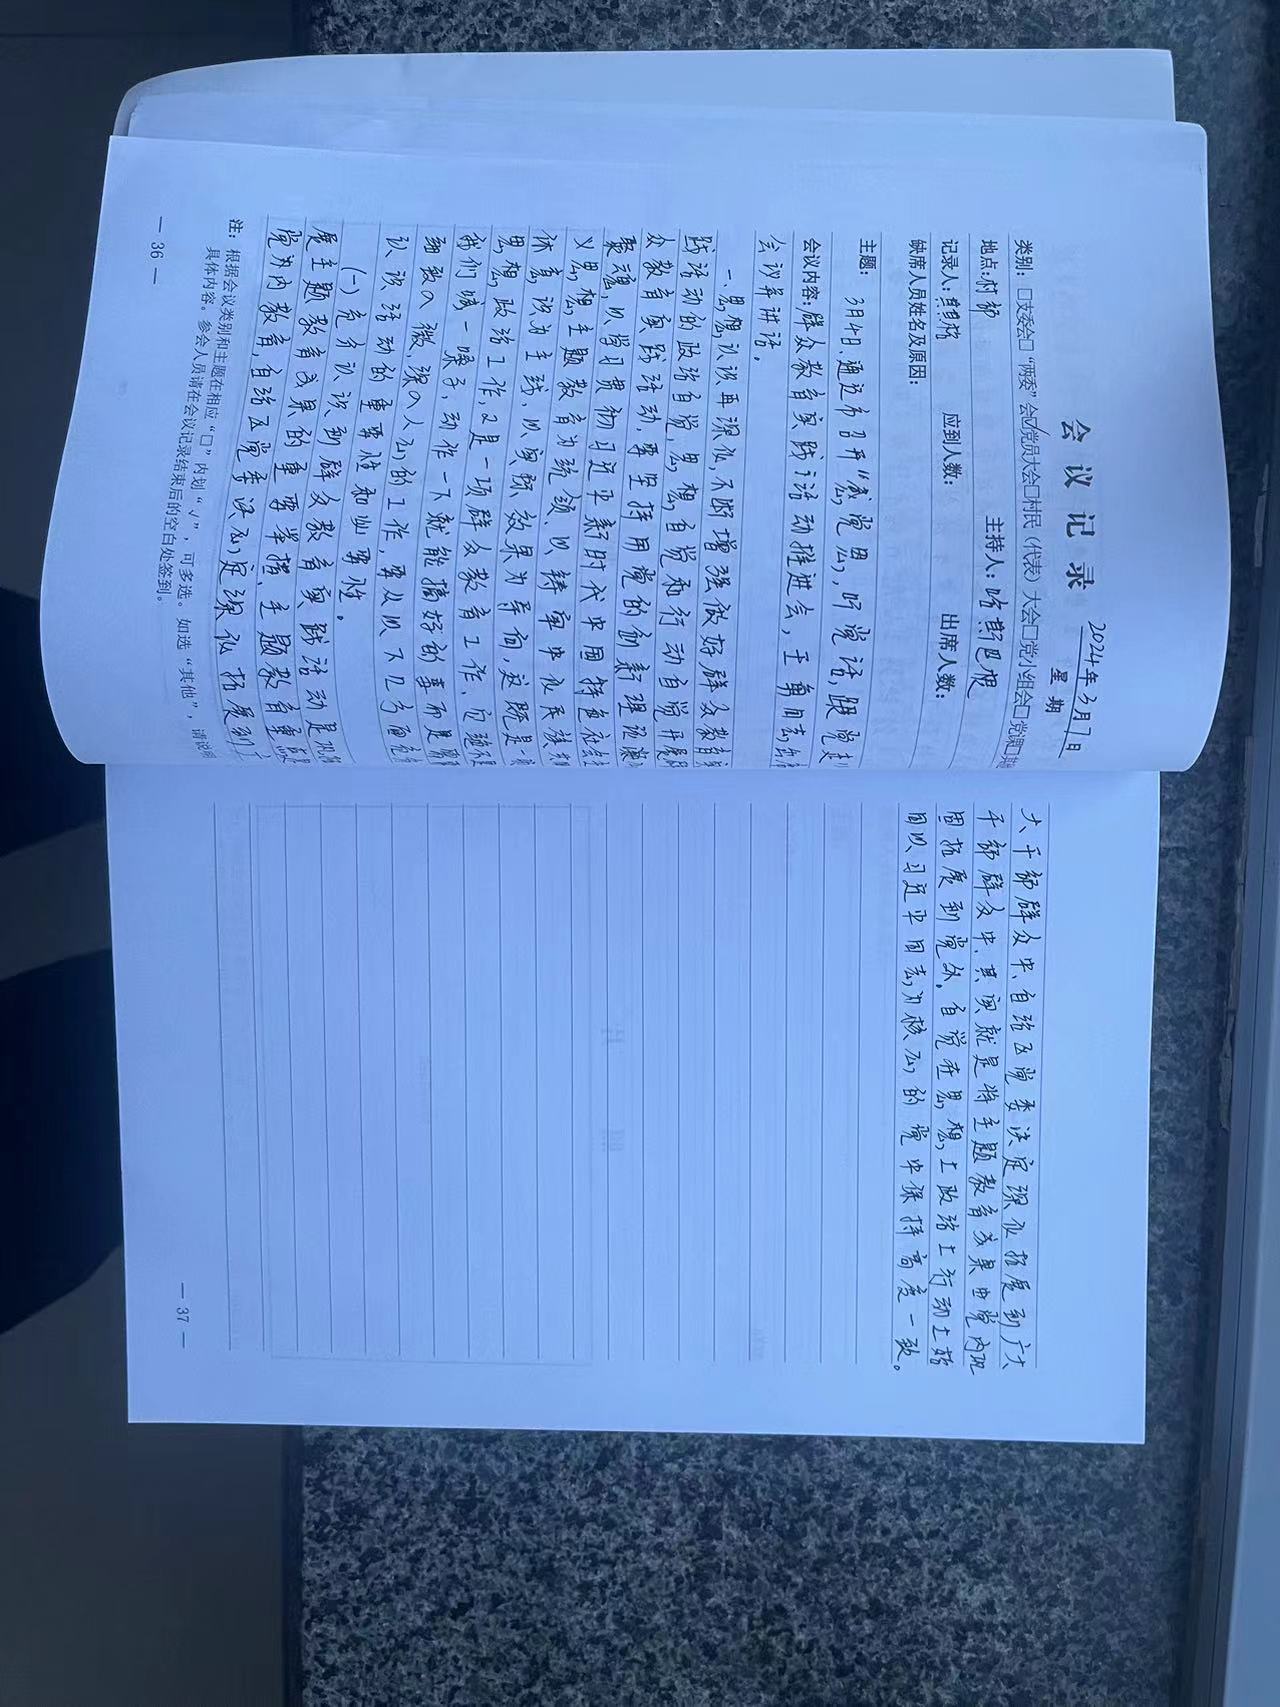 会议记录
2024年3月7日
星期
类别：□支委会□“两委”会☑党员大会□村民（代表）大会□党小组会□党课□其他
地点：村部 主持人：哈斯巴根
记录人： 应到人数： 出席人数：
缺席人员姓名及原因：
主题： 3月4日，通辽市召开“感党恩，听党话，跟党走”
会议内容：群众教育实践活动推进会，王角同志出席
会议并讲话。
一、思想认识再深化，不断增强做好群众教育实
践活动的政治自觉，思想自觉和行动自觉开展群
众教育实践活动，要坚持用党的创新理论凝心
聚魂，以学习贯彻习近平新时代中国特色社会主
义思想主题教育为统领，以铸牢中华民族共同
体意识为主线，以实际效果为导向，这既是一项
思想政治工作，又是一项群众教育工作，可绝不是
我们喊一嗓子，动作一下就能搞好的事而是需要
细致入微，深入人心的工作，要从以下几方面充分
认识活动的重要性和必要性。
（一）充分认识到群众教育实践活动是巩固拓
展主题教育成果的重要举措，主题教育重点是
党内教育，自治区党委决定，深化拓展到广
注：根据会议类别和主题在相应“□”内划“√”，可多选。如选“其他”，请说明
具体内容。参会人员请在会议记录结束后的空白处签到。
— 36 —
大干部群众中，自治区党委决定深化拓展到广大
干部群众中，其实就是将主题教育成果由党内巩
固拓展到党外，自觉在思想上政治上行动上始
同以习近平同志为核心的党中保持高度一致。
— 37 —